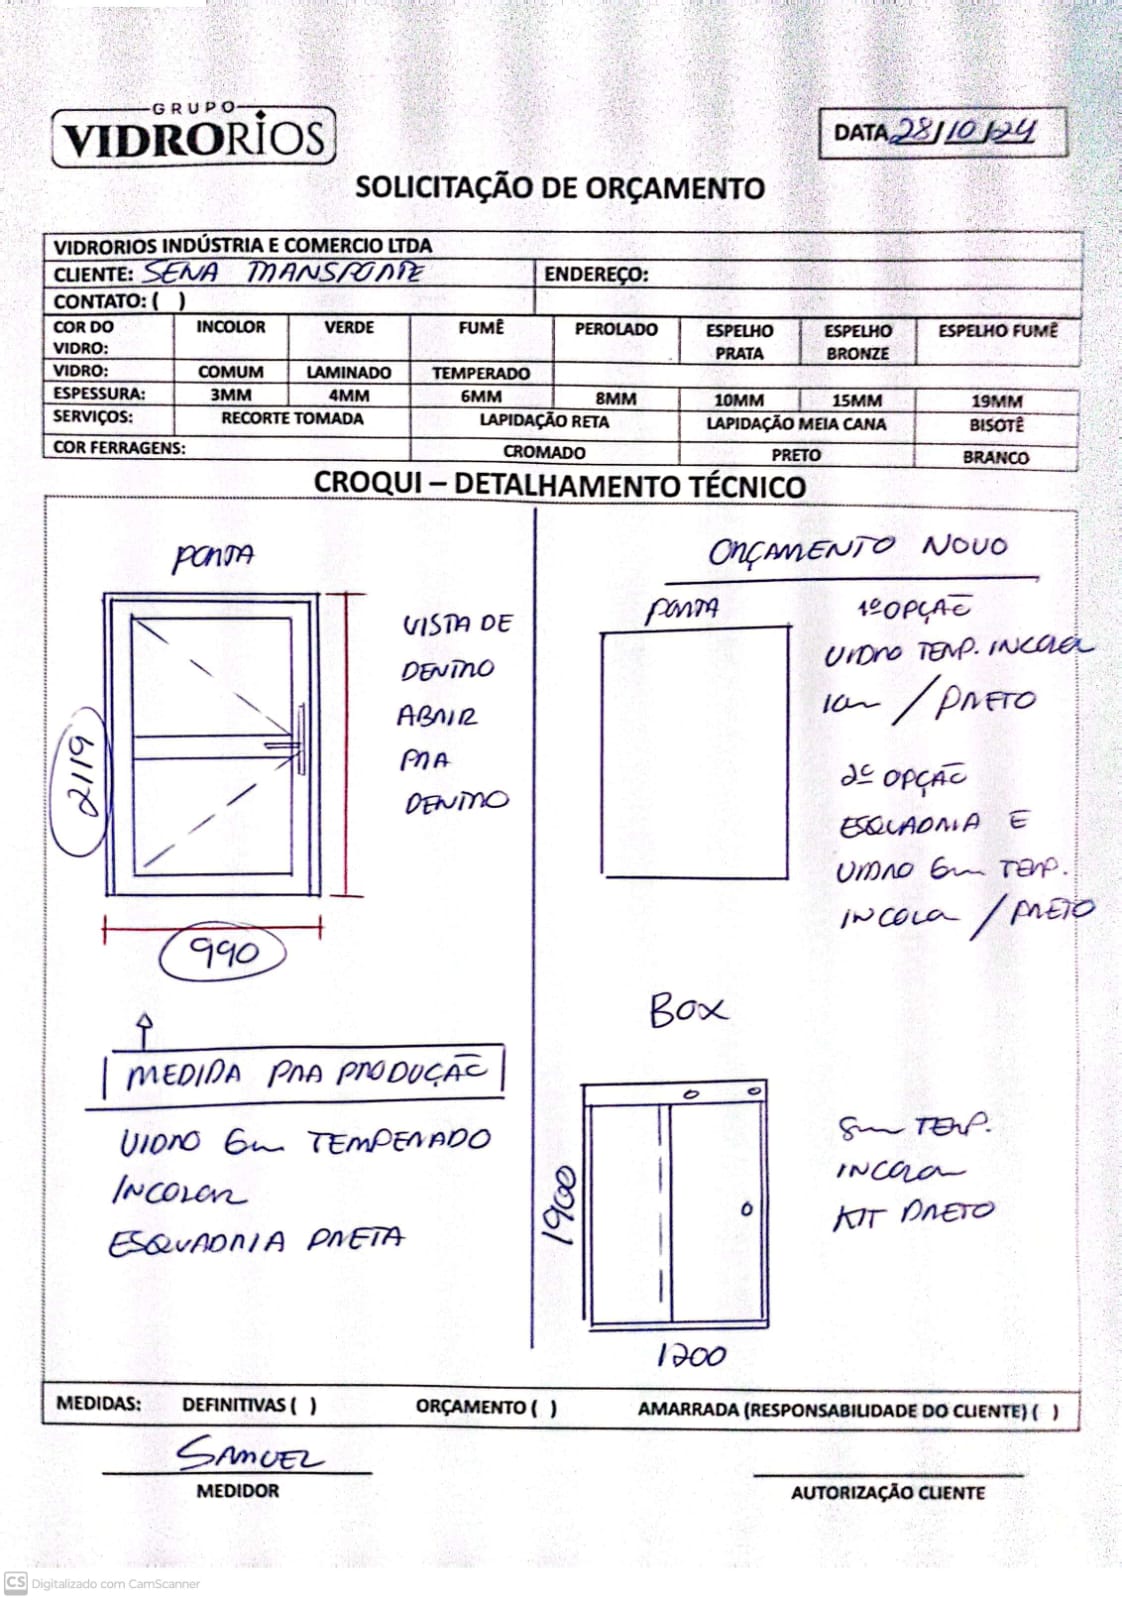 GRUPO
VIDRORIOS
DATA 28/10/24
SOLICITAÇÃO DE ORÇAMENTO
VIDRORIOS INDÚSTRIA E COMERCIO LTDA
CLIENTE: SENA TRANSPORTE ENDEREÇO:
CONTATO: ( )
COR DO VIDRO: INCOLOR VERDE FUMÊ PEROLADO ESPELHO PRATA ESPELHO BRONZE ESPELHO FUMÊ
VIDRO: COMUM LAMINADO TEMPERADO
ESPESSURA: 3MM 4MM 6MM 8MM 10MM 15MM 19MM
SERVIÇOS: RECORTE TOMADA LAPIDAÇÃO RETA LAPIDAÇÃO MEIA CANA BISOTÊ
COR FERRAGENS: CROMADO PRETO BRANCO
CROQUI – DETALHAMENTO TÉCNICO
PORTA
VISTA DE
DENTRO
ABRIR
PRA
DENTRO
2119
990
MEDIDA PRA PRODUÇÃO
VIDRO 6m TEMPERADO
INCOLOR
ESQUADRIA PRETA
ORÇAMENTO NOVO
PORTA
1º OPÇÃO
VIDRO TEMP. INCOLOR
10m / PRETO
2º OPÇÃO
ESQUADRIA E
VIDRO 6m TEMP.
INCOLOR / PRETO
BOX
1900
1200
8m TEMP.
INCOLOR
KIT PRETO
MEDIDAS: DEFINITIVAS ( ) ORÇAMENTO ( ) AMARRADA (RESPONSABILIDADE DO CLIENTE) ( )
SAMUEL
MEDIDOR
AUTORIZAÇÃO CLIENTE
CS Digitalizado com CamScanner